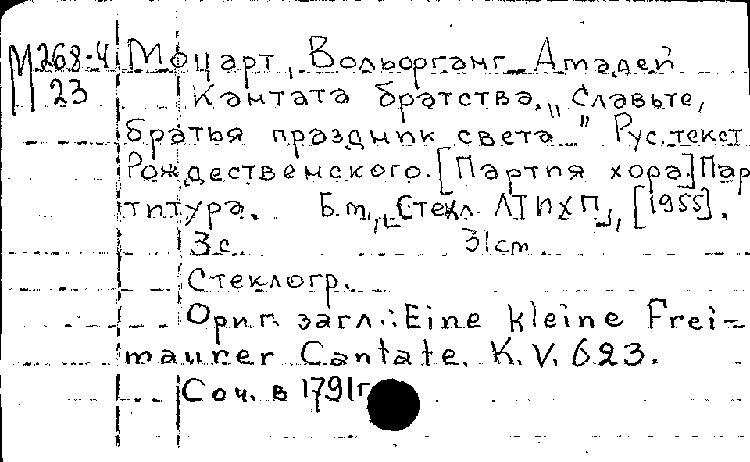 М268-4 Моцарт, Вольфганг Амадей
23 Кантата братства. „Славьте,
братья праздник света" Рус. текст
Рождественского. [Партия хора] Пар
титура. Б.м., „Стекл. ЛТПХП", [1955].
3 с. 31cm
Стеклогр.
Ориг. загл.: Eine kleine Frei-
maurer Cantate. K.V. 623.
Соч. в 1791г